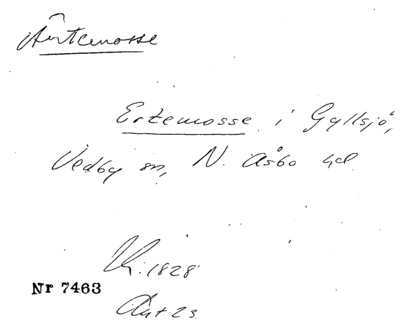 Ärtemosse
Ertemosse i Gyllsjö,
Vedby sn, N. Åsbo hd
1828
Nr 7463
Akt 23